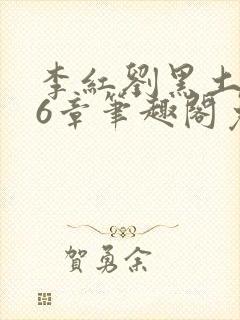 李紅劉黑土
6章筆趣閣
賀勇余